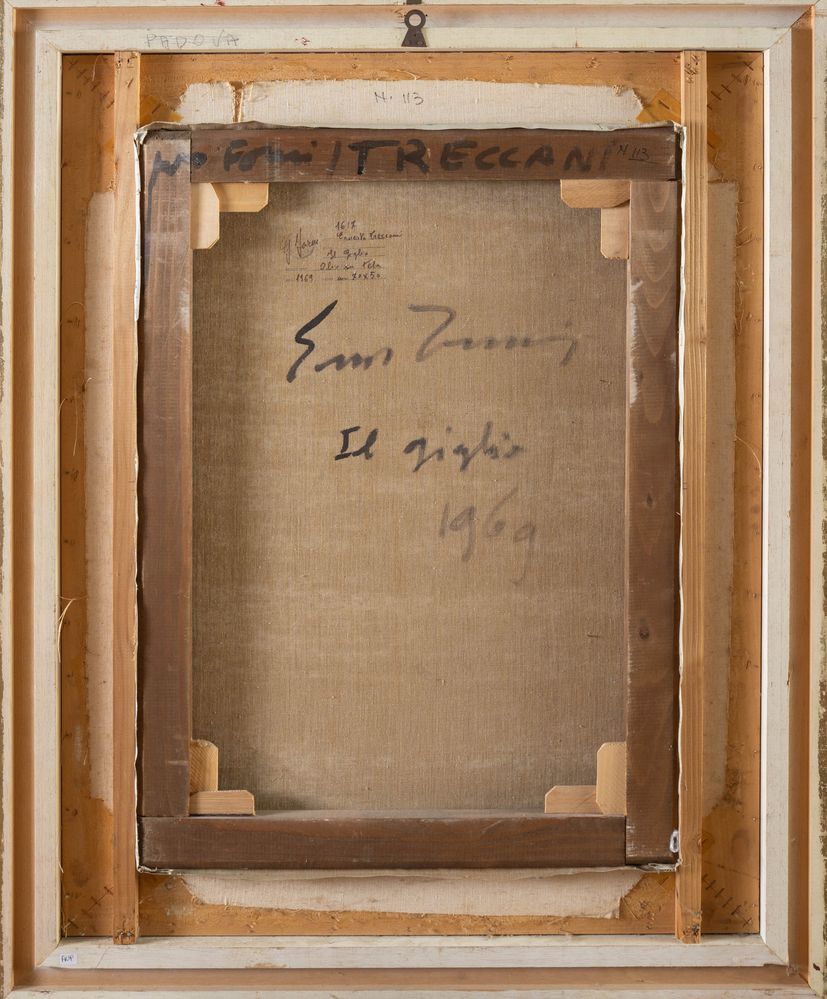 PADOVA
N. 113
TRECCANI N 113
1617
Ernesto Treccani
Il Giglio
Olio su Tela
1969 cm 70x50
Il giglio
1969